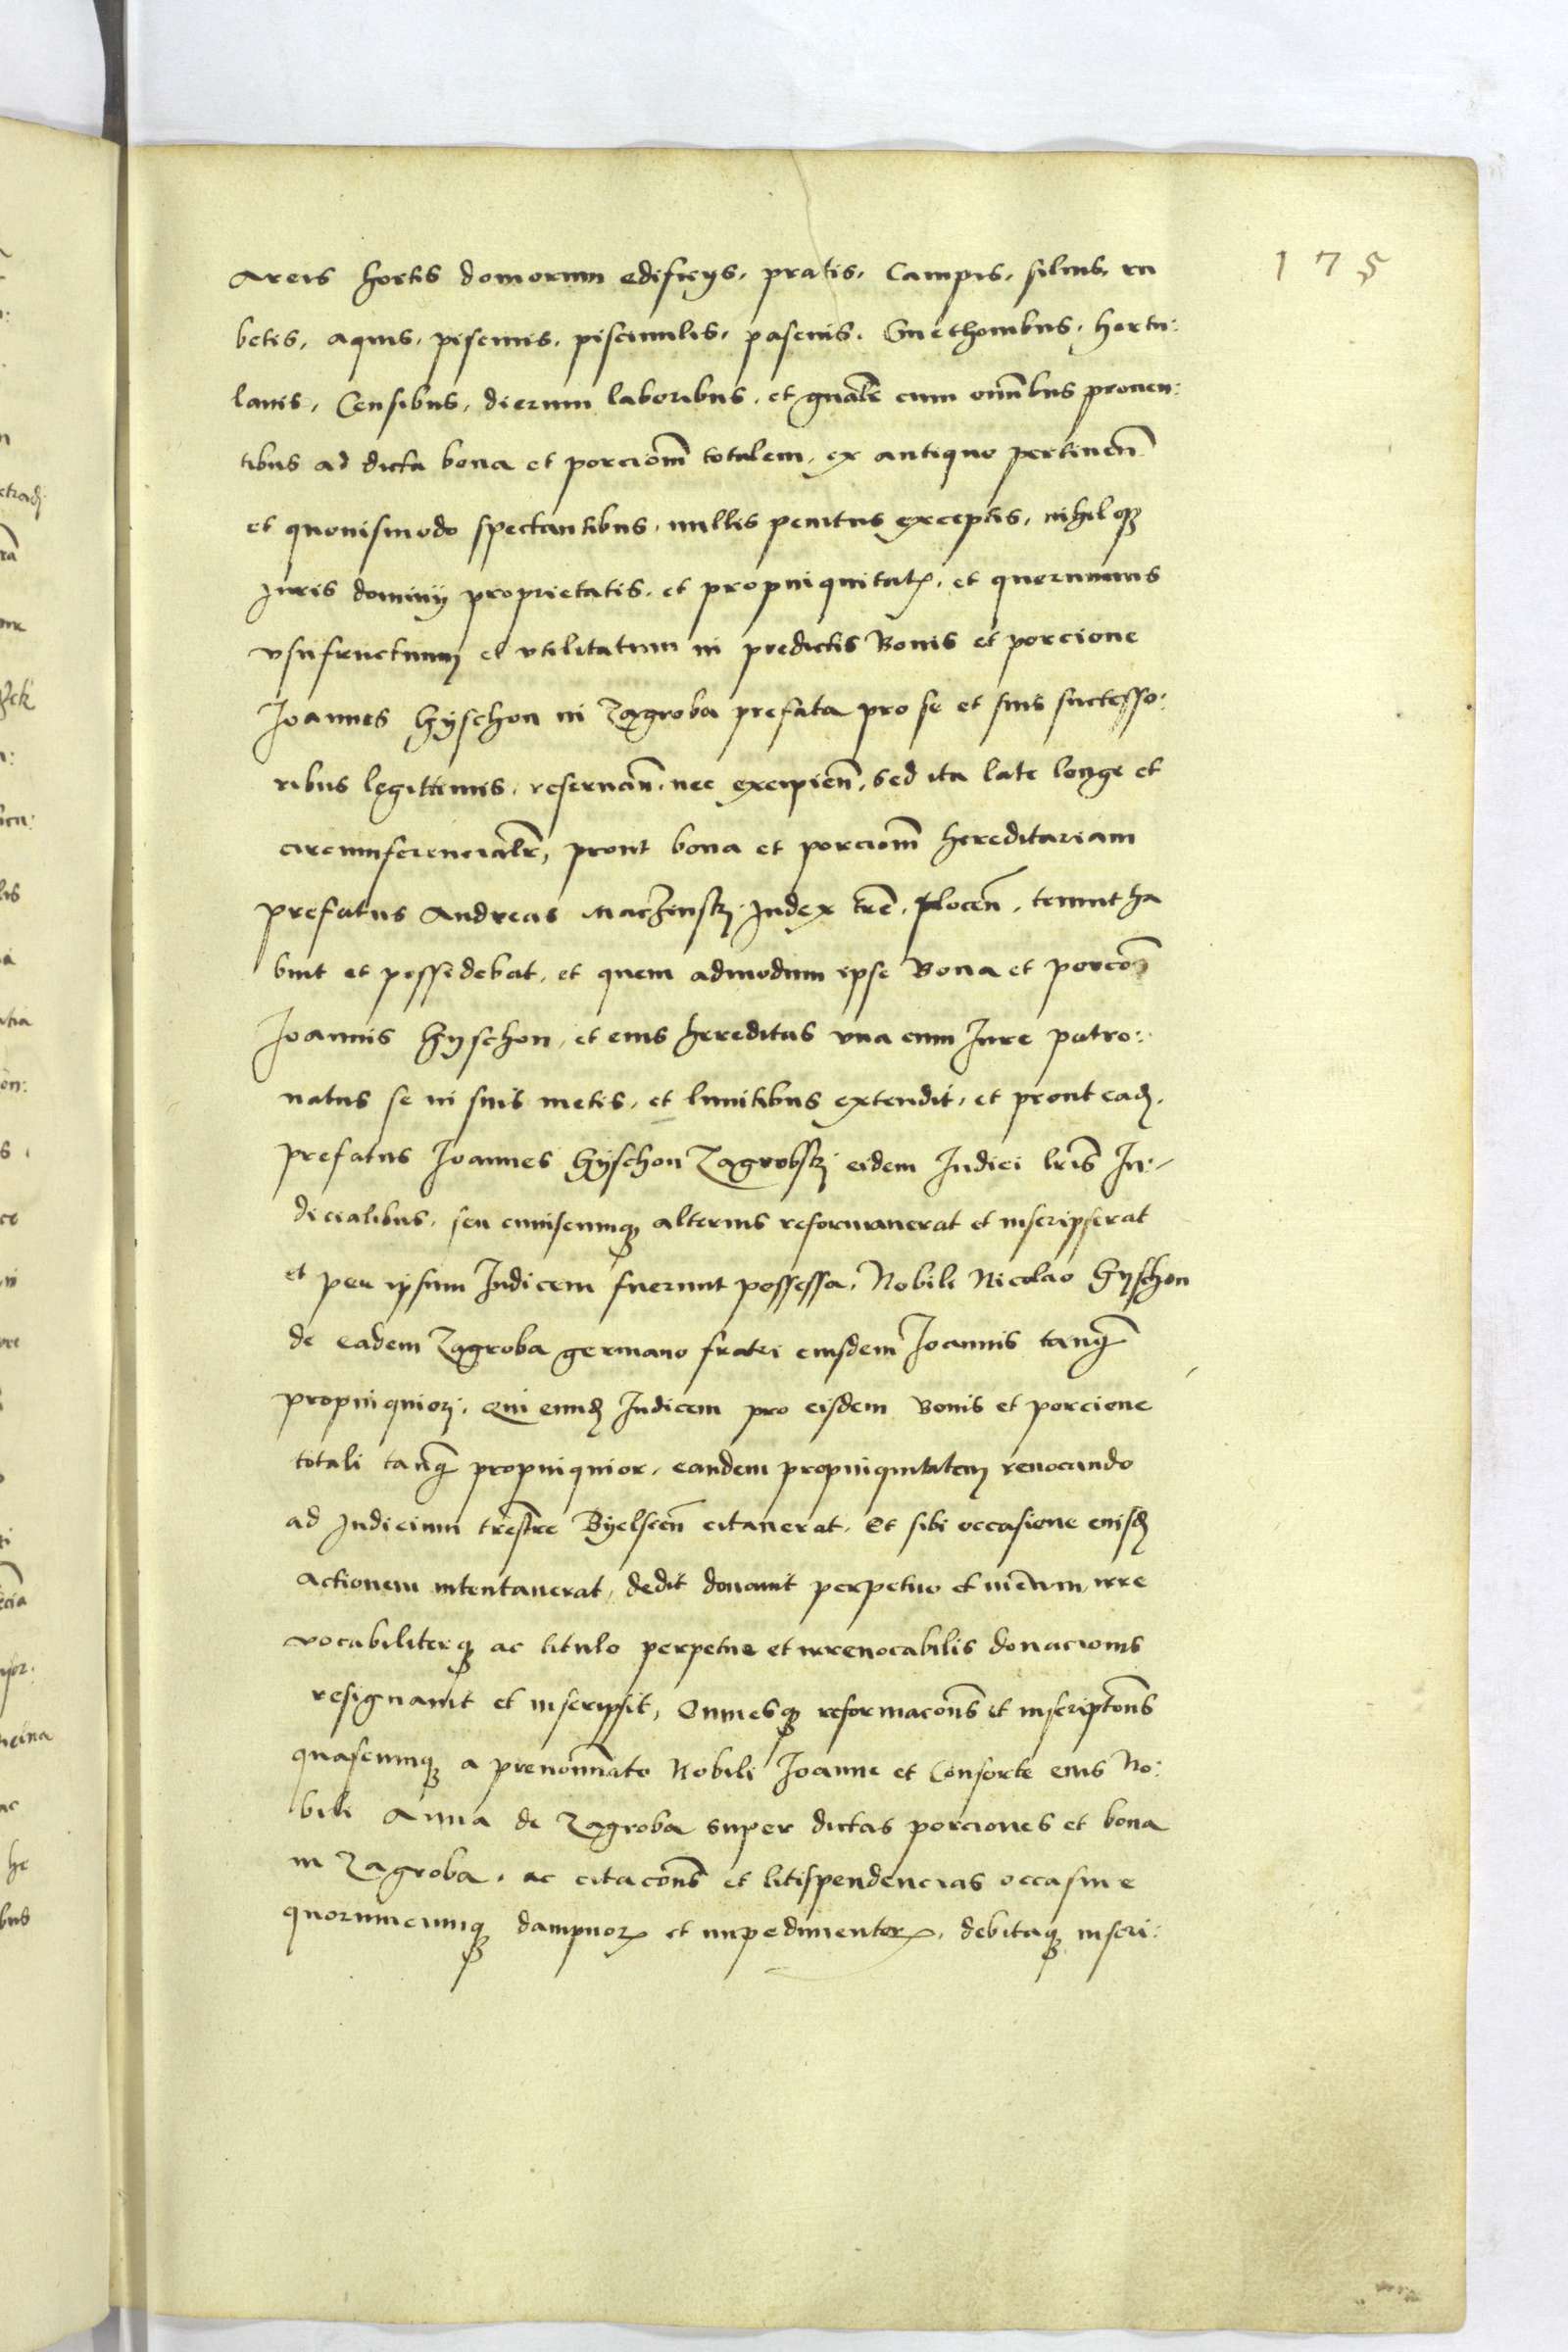 175
areis hortis domorum edificys, pratis, Campis, siluis, ru
betis, aquis, piscinis, piscinulis, pascuis, Cmethonibus, hortu:
lanis, Censibus, dierum laboribus, et gnalr̄ cum om̄ibus prouen:
tibus ad dicta bona et porcionē totalem, ex antiquo pertinen̄
et quouismodo spectantibus, nullis penitus exceptis, nihilqꝫ
Juris dominij proprietatis, et propinquitatꝭ, et quorumuis
vsufructuum et vtilitatum in predictis Bonis et porcione
Joannes Gyschon in Zagroba prefata pro se et suis successo:
ribus legittimis, reseruan̄, nec excipien̄, Sed ita late longe et
circumferencialr̄, prout bona et porcionē hereditariam
prefatus Andreas Index trē, plocen̄, tenuit ha
buit et possidebat, et quem admodum ipse Bona et porcō
Joannis Gyschon, et eius hereditas vna cum Jure patro:
natus se in suis metis, et limitibus extendit, et prout eadꝫ
prefatus Joannes Gyschon Zagrobskj eidem Judici lr̄is Ju:
dicialibus, seu cuiuscumqꝫ alterius reformauerat et inscripserat
et per ipsum Judicem fuerunt possessa, Nobili Nicolao Gyschon
de eadem Zagroba germano fratri eiusdem Joannis tanqꝫ
propinquiorj, Qui eundꝫ Judicem pro eisdem Bonis et porcione
totali tanqꝫ propinquior, eandem propinquitatem reuocando
ad Judicium trestre Byelscen̄ citauerat, Et sibi occasione eiusdꝫ
actionem intentauerat, dedit donauit perpetuo et irre
vocabiliterqꝫ ac titulo perpetue et irreuocabilis donacionis
resignauit et inscripsit, Omnesqꝫ reformacōnes et inscriptōnes
quascumqꝫ a prenominato Nobili Joanne et Consorte eius No:
bili Anna de Zagroba super dictas porciones et bona
in Zagroba, ac citacōnes et litispendencias occasione
quorumcumqꝫ dampnorꝭ et impedimentorꝭ, debitaqꝫ inscri: